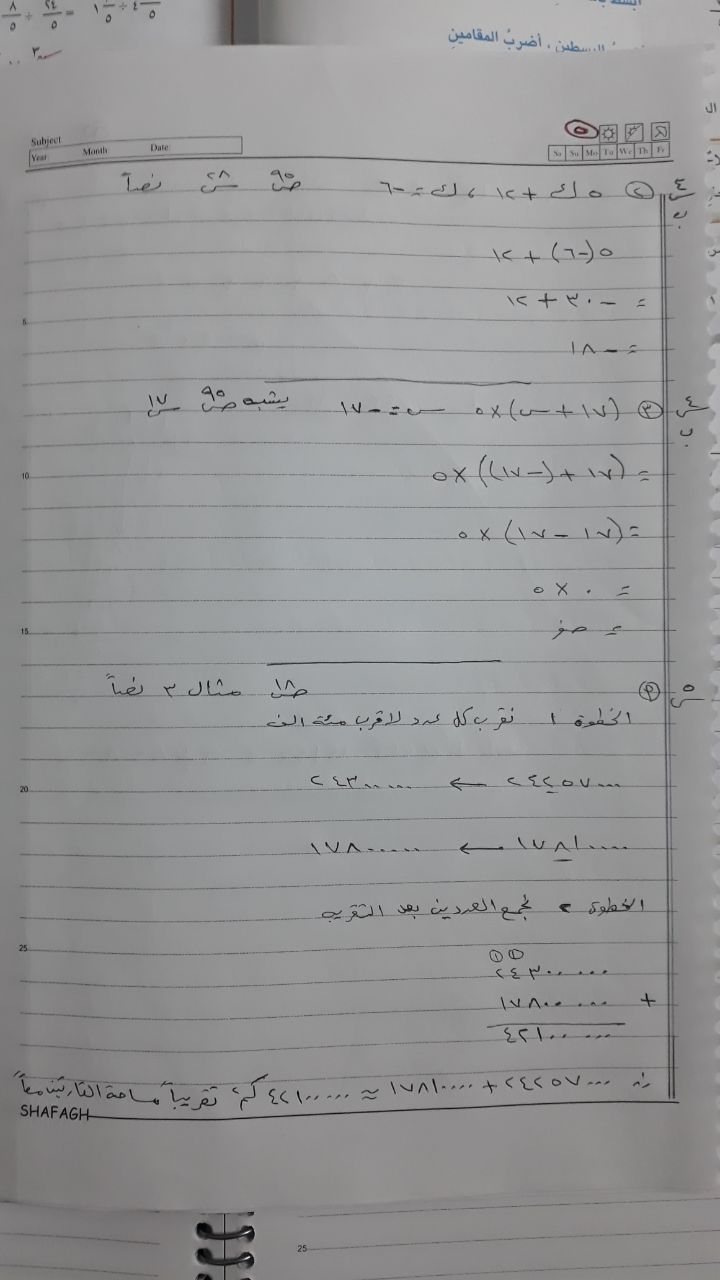 أضربُ المقامينِ
٨/٥ ÷ ٢٤/٥ =
Subject
Year Month Date:
Sa Su Mo Tu We Th Fr
٥
س٤ ب ② ٥ك + ١٢ ، ك = -٦ ص٩٥ س٢٨ نصاً
٥(-٦) + ١٢
= -٣٠ + ١٢
= -١٨
س٤ ب ③ (١٧ + س) × ٥ س = -١٧ يشبه ص٩٥ س١٧
= (١٧ + (-١٧)) × ٥
= (١٧ - ١٧) × ٥
= ٠ × ٥
= صفر
س٥ ص١٨ مثال ٣ نصاً
الخطوة ١ نقرب كل عدد لاقرب مئة الف
٢٤٢٥٧٠٠٠ ← ٢٤٣٠٠٠٠٠
١٧٨١٠٠٠٠ ← ١٧٨٠٠٠٠٠
الخطوة ٢ نجمع العددين بعد التقريب
① ①
٢٤٣٠٠٠٠٠
+ ١٧٨٠٠٠٠٠
٤٢١٠٠٠٠٠
∴ ٢٤٢٥٧٠٠٠ + ١٧٨١٠٠٠٠ ≈ ٤٢١٠٠٠٠٠ كم٢ تقريباً مساحة القارتين معاً
SHAFAGH
5
10
15
20
25
25